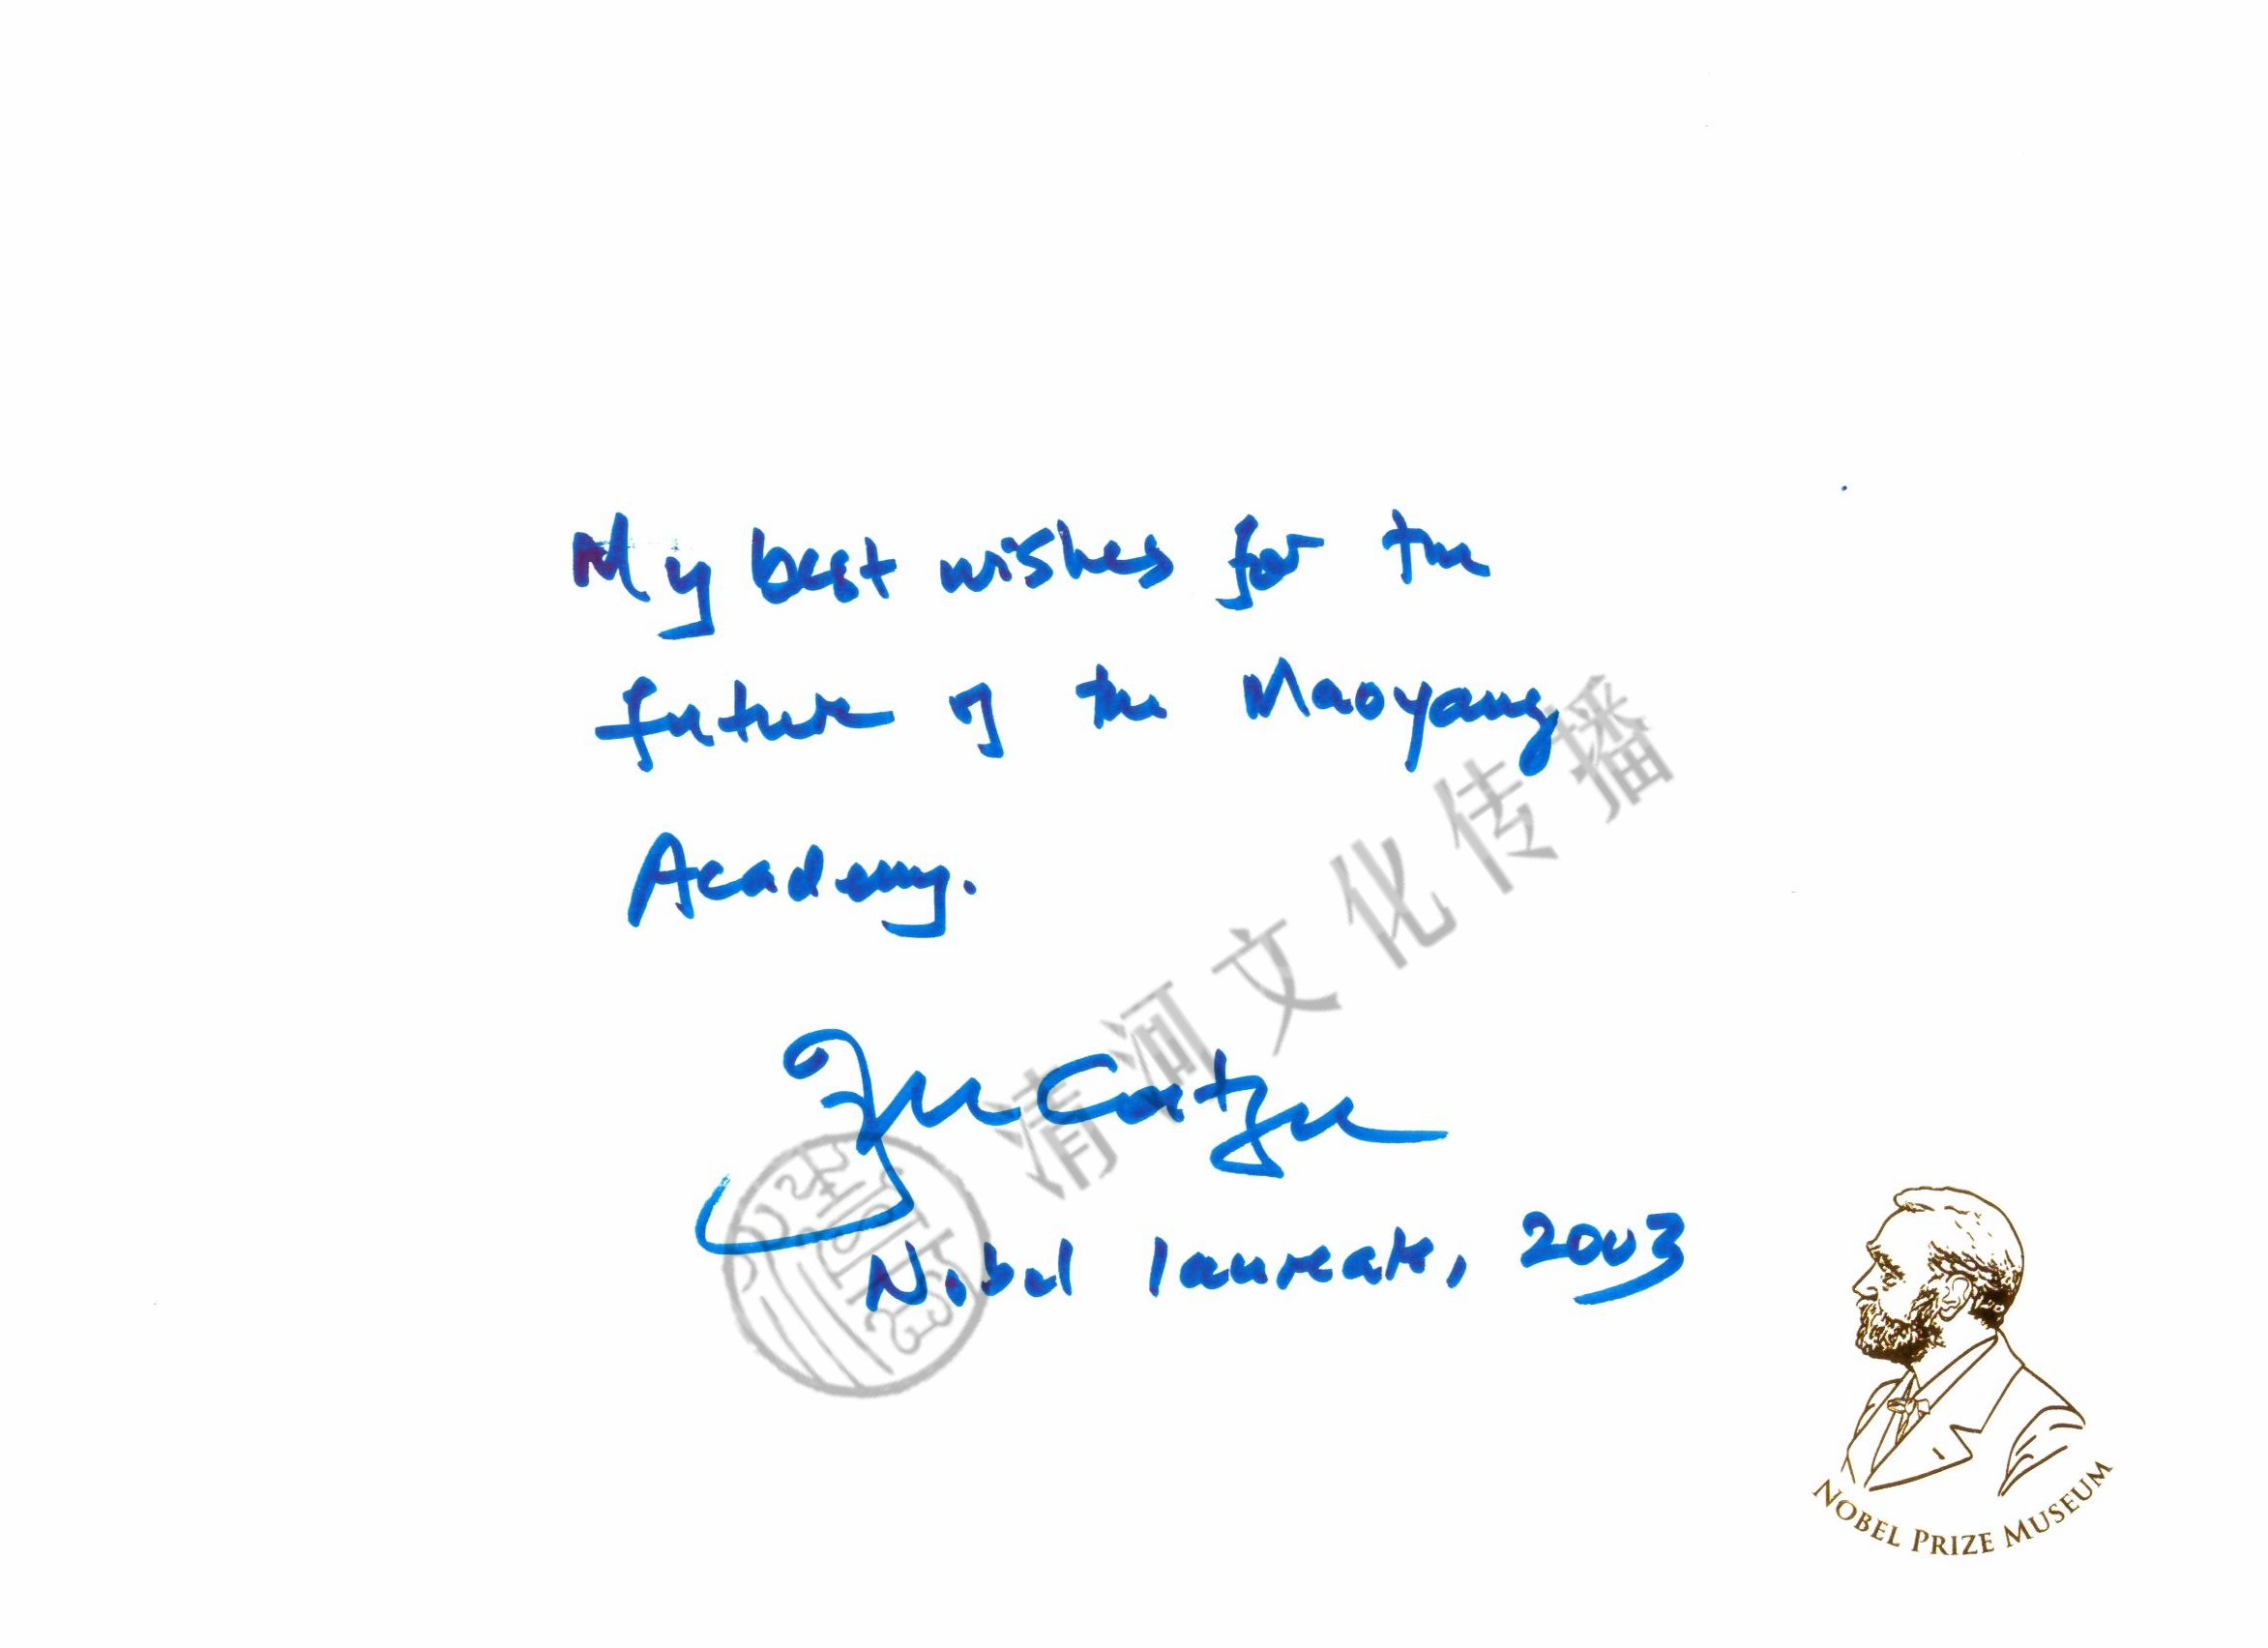 My best wishes for the
future of the Maoyang
Academy.
J M Coetzee
Nobel laureate, 2003
清河文化传播
NOBEL PRIZE MUSEUM